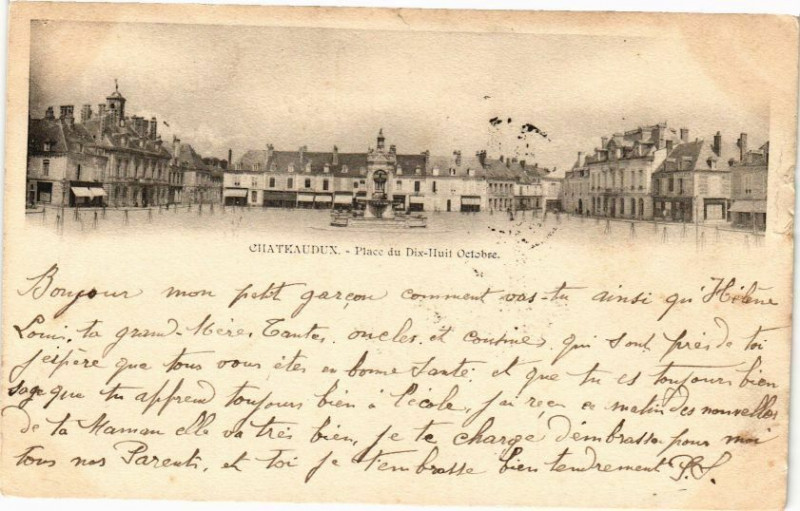 CHATEAUDUN. - Place du Dix-Huit Octobre.
Bonjour mon petit garçon comment vas-tu ainsi qu'Hélène
Louis, ta grand-Mère, Tantes, oncles, et cousines, qui sont près de toi
j'espère que tous vous êtes en bonne santé, et que tu es toujours bien
sage que tu apprend toujours bien à l'école, j'ai reçu ce matin des nouvelles
de ta Maman elle va très bien, je te charge d'embrasser pour moi
tous nos Parents, et toi je t'embrasse bien tendrement